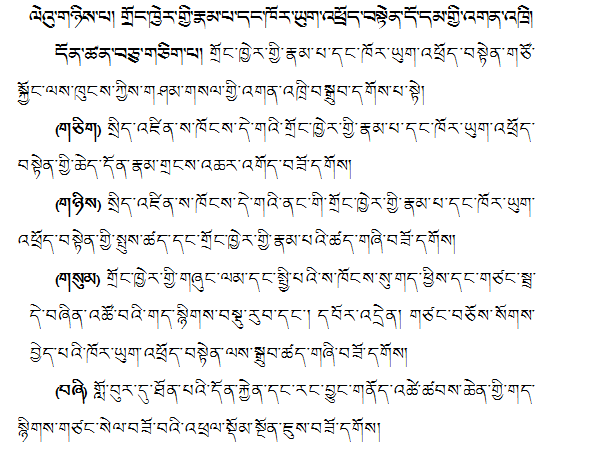 ལེའུ་གཉིས་པ། གྲོང་ཁྱེར་གྱི་རྣམ་པ་དང་ཁོར་ཡུག་འཕྲོད་བསྟེན་དོ་དམ་གྱི་འགན་འཁྲི།
དོན་ཚན་བཅུ་གཅིག་པ། གྲོང་ཁྱེར་གྱི་རྣམ་པ་དང་ཁོར་ཡུག་འཕྲོད་བསྟེན་གཙོ་
སྐྱོང་ལས་ཁུངས་ཀྱིས་གཤམ་གསལ་གྱི་འགན་འཁྲི་བསྒྲུབ་དགོས་པ་སྟེ།
(གཅིག) སྲིད་འཛིན་ས་ཁོངས་དེ་གའི་གྲོང་ཁྱེར་གྱི་རྣམ་པ་དང་ཁོར་ཡུག་འཕྲོད་
བསྟེན་གྱི་ཆེད་དོན་རྣམ་གྲངས་འཆར་འགོད་བཟོ་དགོས།
(གཉིས) སྲིད་འཛིན་ས་ཁོངས་དེ་གའི་ནང་གི་གྲོང་ཁྱེར་གྱི་རྣམ་པ་དང་ཁོར་ཡུག་
འཕྲོད་བསྟེན་གྱི་སྤུས་ཚད་དང་གྲོང་ཁྱེར་གྱི་རྣམ་པའི་ཚད་གཞི་བཟོ་དགོས།
(གསུམ) གྲོང་ཁྱེར་གྱི་གཞུང་ལམ་དང་སྤྱི་པའི་ས་ཁོངས་སུ་གད་ཕྱིས་དང་གཙང་སྦྲ་
དེ་བཞིན་འཚོ་བའི་གད་སྙིགས་བསྡུ་རུབ་དང་། དབོར་འདྲེན། གཙང་བཅོས་སོགས་
བྱེད་པའི་ཁོར་ཡུག་འཕྲོད་བསྟེན་ལས་སྒྲུབ་ཚད་གཞི་བཟོ་དགོས།
(བཞི) གློ་བུར་དུ་ཐོན་པའི་དོན་རྐྱེན་དང་རང་བྱུང་གནོད་འཚེ་ཚབས་ཆེན་གྱི་གད་
སྙིགས་གཙང་སེལ་བཟོ་བའི་འཕྲལ་སྡོམ་སྔོན་ཇུས་བཟོ་དགོས།